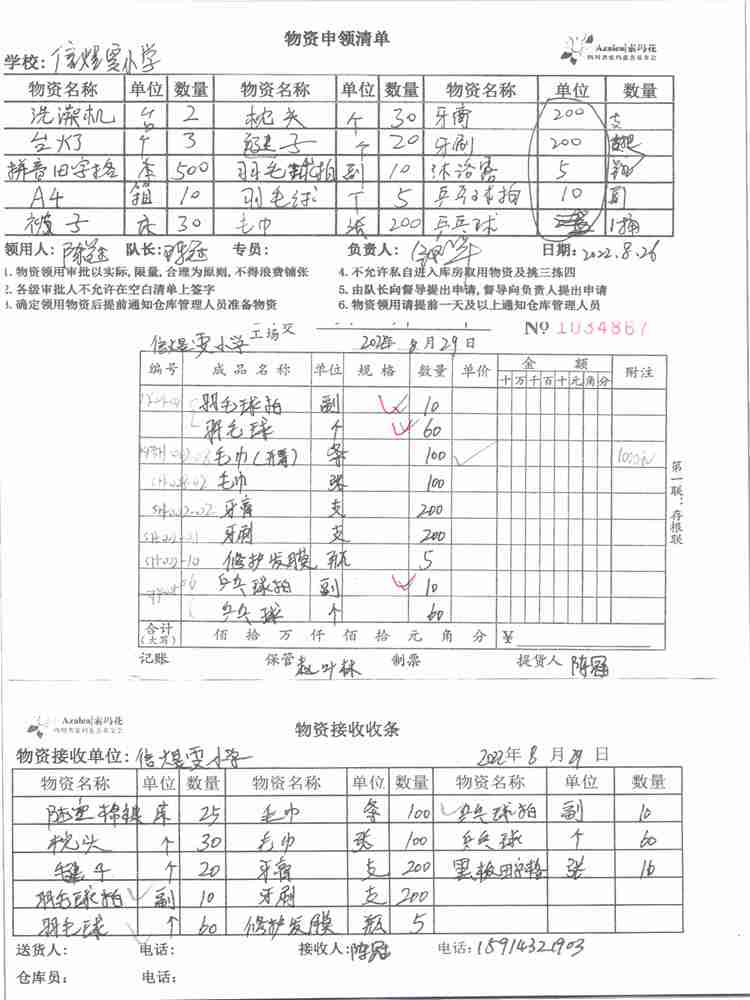 物资申领清单
Azalea|索玛花
四川省索玛慈善基金会
学校: 信煜雯小学
物资名称 单位 数量 物资名称 单位 数量 物资名称 单位 数量
洗澡机 台 2 枕头 个 30 牙膏 200 支
台灯 个 3 毽子 个 20 牙刷 200
拼音田字格 条 500 羽毛球拍 副 10 沐浴露 5
A4 箱 10 羽毛球 个 5 乒乓球拍 10
被子 床 30 毛巾 张 200 乒乓球 1桶
领用人: 陈冠 队长: 陈冠 专员: 负责人: 日期: 2022.8.26
1. 物资领用审批以实际, 限量, 合理为原则, 不得浪费铺张 4. 不允许私自进入库房取用物资及挑三拣四
2. 各级审批人不允许在空白清单上签字 5. 由队长向督导提出申请, 督导向负责人提出申请
3. 确定领用物资后提前通知仓库管理人员准备物资 6. 物资领用请提前一天及以上通知仓库管理人员
信煜雯小学 2022年 8月29日 № 1034867
编号 成品名称 单位 规格 数量 单价 金额 附注
十万千百十元角分
羽毛球拍 副 10
羽毛球 个 60
毛巾 条 100
毛巾 张 100
牙膏 支 200
牙刷 支 200
修护发膜 瓶 5
乒乓球拍 副 10
乒乓球 个 60
第一联:存根联
合计(大写) 佰 拾 万 仟 佰 拾 元 角 分 ¥
记账 保管 赵叶林 制票 提货人 陈冠
Azalea|索玛花
四川省索玛慈善基金会
物资接收收条
物资接收单位: 信煜雯小学 2022年 8月 29日
物资名称 单位 数量 物资名称 单位 数量 物资名称 单位 数量
床 25 毛巾 条 100 乒乓球拍 副 10
枕头 个 30 毛巾 张 100 乒乓球 个 60
毽子 个 20 牙膏 支 200 黑板田字格 张 16
羽毛球拍 副 10 牙刷 支 200
羽毛球 个 60 修护发膜 瓶 5
送货人: 电话: 接收人: 陈冠 电话: 15914321903
仓库员: 电话: